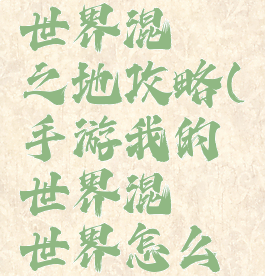 世界混
之地攻略(
手游我的
世界混
世界怎么